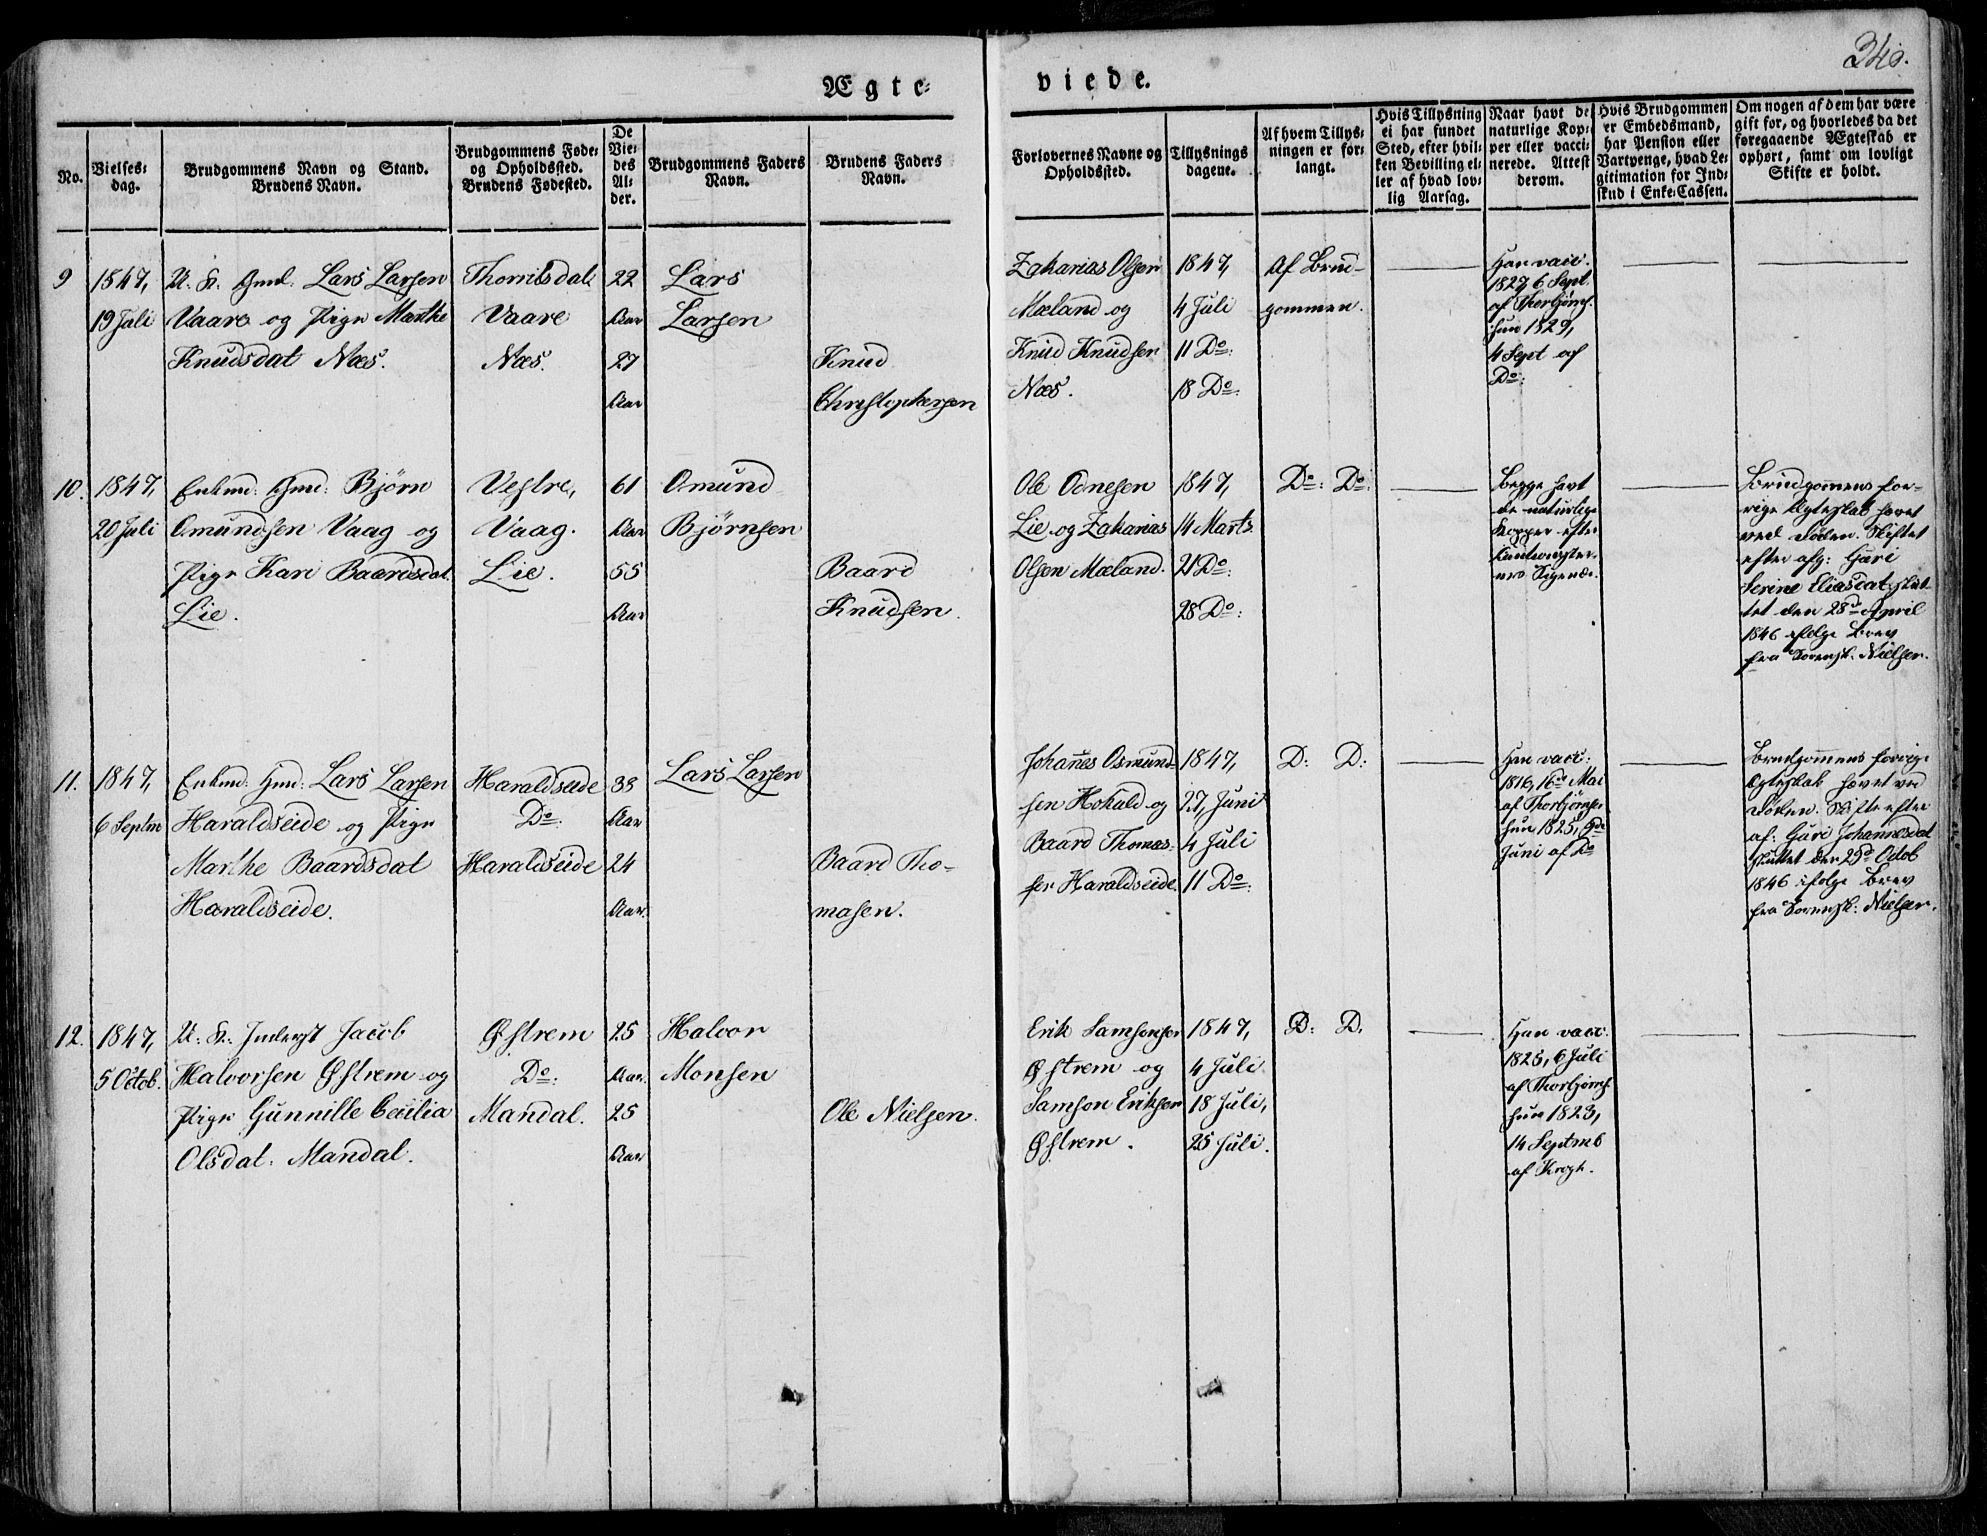 340.
Ægte-
viede.
No.
Vielses-
dag.
Brudgommens Navn og Stand.
Brudens Navn.
Brudgommens Føde-
og Opholdssted.
Brudens Fødested.
De
Vie-
des
Al-
der.
Brudgommens Faders
Navn.
Brudens Faders
Navn.
Forlovernes Navne og
Opholdssted.
Tillysnings
dagene.
Af hvem Tillys-
ningen er for-
langt.
Hvis Tillysning
ei har fundet
Sted, efter hvil-
ken Bevilling el-
ler af hvad lov-
lig Aarsag.
Naar havt de
naturlige Kop-
per eller vacci-
nerede. Attest
derom.
Hvis Brudgommen
er Embedsmand,
har Pension eller
Vartpenge, hvad Le-
gitimation for Ind-
skud i Enke-Cassen.
Om nogen af dem har være
gift for, og hvorledes da det
foregaaende Ægteskab er
ophørt, samt om lovligt
Skifte er holdt.
9
1847,
19 Juli
U. K. Gmd. Lars Larsen
Vaare og Pige Marthe
Knudsdat Næs.
Thomsdal
Vaare
Næs.
22
Aar
27
Aar
Lars
Larsen
Knud
Christophersen
Zakarias Olsen
Mæland og
Knud Knudsen
Næs.
1847,
4 Juli
11 Do:
18 Do:
Af Brud-
gommen.
Han vacc.
1827, 6 Sept.
af Thorbjörns.
hun 1829,
4 Sept af
Do:
10.
1847,
20 Juli
Enkmd: Gmd: Bjørn
Omundsen Vaag og
Pige Kari Baardsdat.
Lie.
Vestre,
Vaag.
Lie.
61
Aar
55
Aar
Omund
Bjørnsen
Baard
Knudsen.
Ole Odnesen
Lie og Zakarias
Olsen Mæland.
1847,
14 Marts.
21 Do:
28 Do:
Do: Do:
Begge havt
de naturlige
Kopper efter
Brudgomens for-
rige Ægteskab hævet
ved Døden. Skiftet
efter afg: Guri
Serine Eliasdat. slut-
tet den 28de April
1846 ifølge Brev
fra Sorensk. Nielsen.
11.
1847,
6 Septm
Enkmd: Gmd: Lars Larsen
Haraldseide og Pige
Marthe Baardsdat
Haraldseide.
Haraldseide
Do:
Haraldseide
38
Aar
24
Aar.
Lars Larsen
Baard Tho-
masen.
Johanes Osmund-
sen Hokald og
Baard Thomas-
sen Haraldseide
1847,
27, Juni
4 Juli
11 Do:
D: D:
Han vacc:
1816, 16de Mai
af Thorbjörnsen
hun 1825, 6de
Juni af Do
Brudgomens forrige
Ægteskab hævet ved
Døden. Skifte efter
af: Guri Johannesdat
sluttet den 29de Octob
1846 ifølge Brev
fra Sorensk: Nielsen.
12.
1847,
5 Octob.
U. K. Inderst Jacob
Halvorsen Østrem og
Pige Gunnille Cecilia
Olsdat. Mandal.
Østrem
Do:
Mandal.
25
Aar.
25
Aar
Halvor
Monsen
Ole Nielsen.
Erik Samsonsen
Østrem og
Samson Eriksen
Østrem.
1847,
4 Juli
18 Juli,
25 Juli.
D: D.
Han vacc.
1825, 6 Juli
af Thorbjörns.
hun 1823,
14 Septmb
af Krogh.